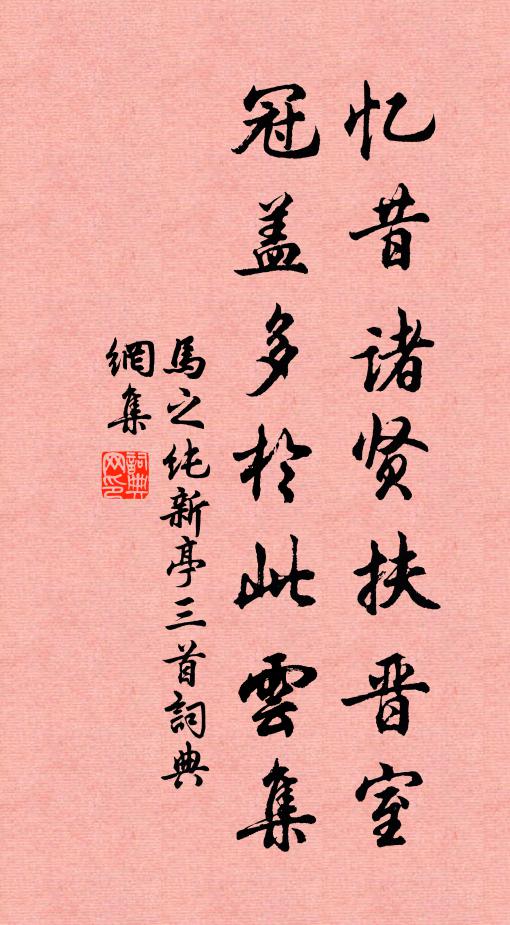 忆昔诸贤扶晋室
冠盖多於此雲集
馬之纯新亭三首詞典
網集
詞典网印